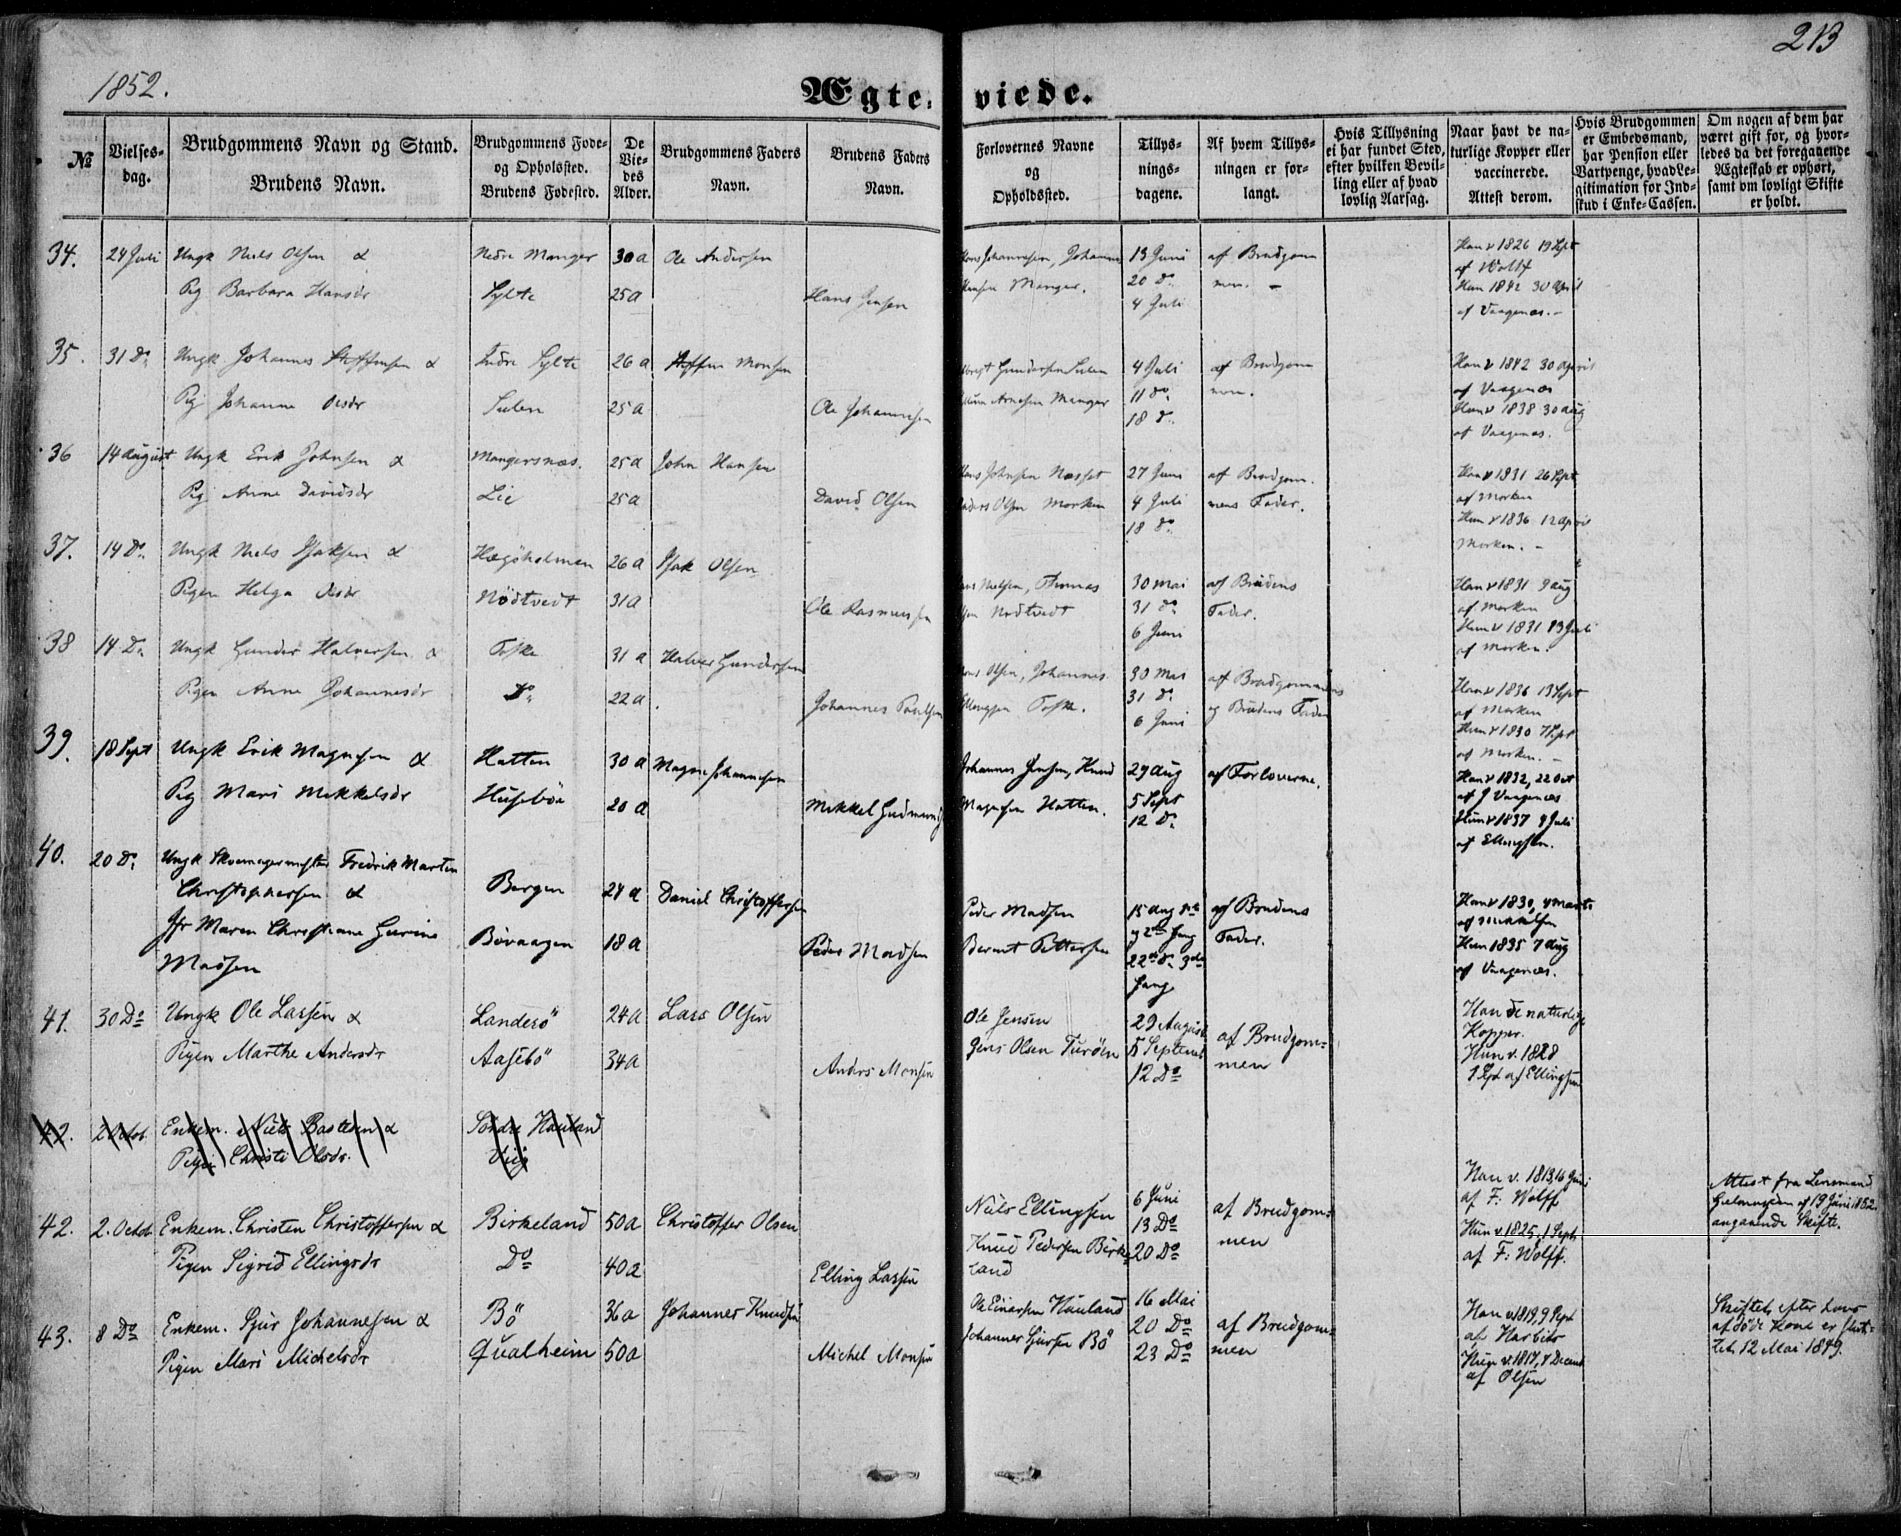 213
1852.
Ægte-viede.
№
Vielses-
dag.
Brudgommens Navn og Stand.
Brudens Navn.
Brudgommens Føde-
og Opholdssted.
Brudens Fødested.
De
Vie-
des
Alder.
Brudgommens Faders
Navn.
Brudens Faders
Navn.
Forlovernes Navne
og
Opholdssted.
Tillys-
nings-
dagene.
Af hvem Tillys-
ningen er for-
langt.
Hvis Tillysning
ei har fundet Sted,
efter hvilken Bevil-
ling eller af hvad
lovlig Aarsag.
Naar havt de na-
turlige Kopper eller
vaccinerede.
Attest derom.
Hvis Brudgommen
er Embedsmand,
har Pension eller
Vartpenge, hvad Le-
gitimation for Ind-
skud i Enke-Cassen.
Om nogen af dem har
været gift før, og hvor-
ledes da det foregaaende
Ægteskab er ophørt,
samt om lovligt Skifte
er holdt.
34. 24 Juli Ungk Niels Olsen & Nedre Manger 30 a Ole Andersen Hans Johannesen, Johannes 13 Juni af Brudgom Han v 1826 19 Sept
af Wolff
Pig Barbara Hansdr Sylte 25 a Hans Jensen Hansen Manger. 20 Do men. Hun 1842 30 April
4 Juli af Vaagenæs.
35. 31 Do Ungk Johannes Steffensen & Indre Sylte 26 a Steffen Monsen Gundersen Sulen 4 Juli af Brudgom Han v 1842 30 April
af Vaagenæs
Pig Johanne Olsdr Sulen 25 a Ole Johannesen Arnesen Manger 11 Do men. Hun v 1838 30 Aug
18 Do af Vaagenæs.
36 14 August Ungk Erik Johnsen & Mangersnæs. 25 a John Hansen Hans Johnsen Næsset 27 Juni af Brudgom Han v 1831 26 Sept
af Morken
Pig Anne Davidsdr Lie 25 a David Olsen Anders Olsen Morken 4 Juli mens Fader. Hun v 1836 12 April
18 Do Morken.
37. 14 Do Ungk Niels Isaksen & Hægøholmen 26 a Isak Olsen Nielsen, Thomas 30 Mai af Brudens Han v 1831 9 Aug
af Morken
Pigen Helga Olsdr Nødtvedt 31 a Ole Rasmussen Olsen Nødtvedt 31 Do Fader. Hun v 1831 13 Juli
6 Juni af Morken.
38 14 Do Ungk Gunder Halversen & Toske 31 a Halver Gundersen Olsen, Johannes 30 Mai af Brudgommens Han v 1836 13 Sept
af Morken
Pigen Anne Johannesdr Do 22 a. Johannes Poulsen Ellingsen Toske. 31 Do og Brudens Fader Hun v 1830 7 Sept
6 Juni af Morken.
39. 18 Sept Ungk Erik Magnesen & Hatten 30 a Magne Johannesen Johannes Jensen, Knud 29 Aug af Forloverne. Han v 1832, 22 Oct
af J Vaagenæs
Pig Mari Mikkelsdr Husebøe 20 a Mikkel Gudmunds Magnesen Hatten. 5 Sept Hun v 1837 9 Juli
12 Do af Ellingsen.
40. 20 Do Ungk Skomagermester Fredrik Marten
Christophersen & Bergen 24 a Daniel Christoffersen Peder Madsen 15 Aug 1ste af Brudens Han v 1830, 4 Marts
af Mikkelsen
Jfr Maren Christiane Gurine Bøvaagen 18 a Peder Madsen Bernt Pettersen og 2den Gang Fader. Hun 1835 7 Aug
Madsen 22de Do 3die
Gang af Vaagenæs.
41. 30 Do Ungk Ole Larsen & Landerø 24 a Lars Olsen Ole Jensen 29 August af Brudgom- Han de naturlige
Kopper.
Pigen Marthe Andersdr Aasebø 34 a Anders Monsen Jens Olsen Turøen 5 Septemb men Hun v. 1828
12 Do 1 Sept af Ellingsen
42. 2 Octob. Enkem. Niels Bastesen & Søndre Hauland
Pigen Christi Olsdr. Viig
42. 2. Octob Enkem. Christen Christoffersen & Birkeland 50 a Christoffer Olsen Niels Ellingsen 6 Juni af Brudgom- Han v. 1813, 16 Juni
af F. Wolff Attest fra Lensmand
13 Do men 19 Juni 1852
angaaende Skifte.
Pigen Sigrid Ellingsdr Do 40 a Elling Larsen Knud Pedersen Birke- 20 Do Hun v. 1825, 1 Sept
land af F: Wolff.
43. 8 Do Enkem. Sjur Johannesen & Bø 36 a Johannes Knudsen Ole Einarsen Hauland 16 Mai af Brudgom- Han v 1819, 9 Sept Skiftet efter hans
20 Do af Harbitz afdøde Kone er slut-
Pigen Mari Michelsdr Qualheim 50 a Michel Monsen Johannes Sjursen Bø 23 Do men Hun v. 1817, 4 Decemb tet 12 Mai 1849.
af Olsen